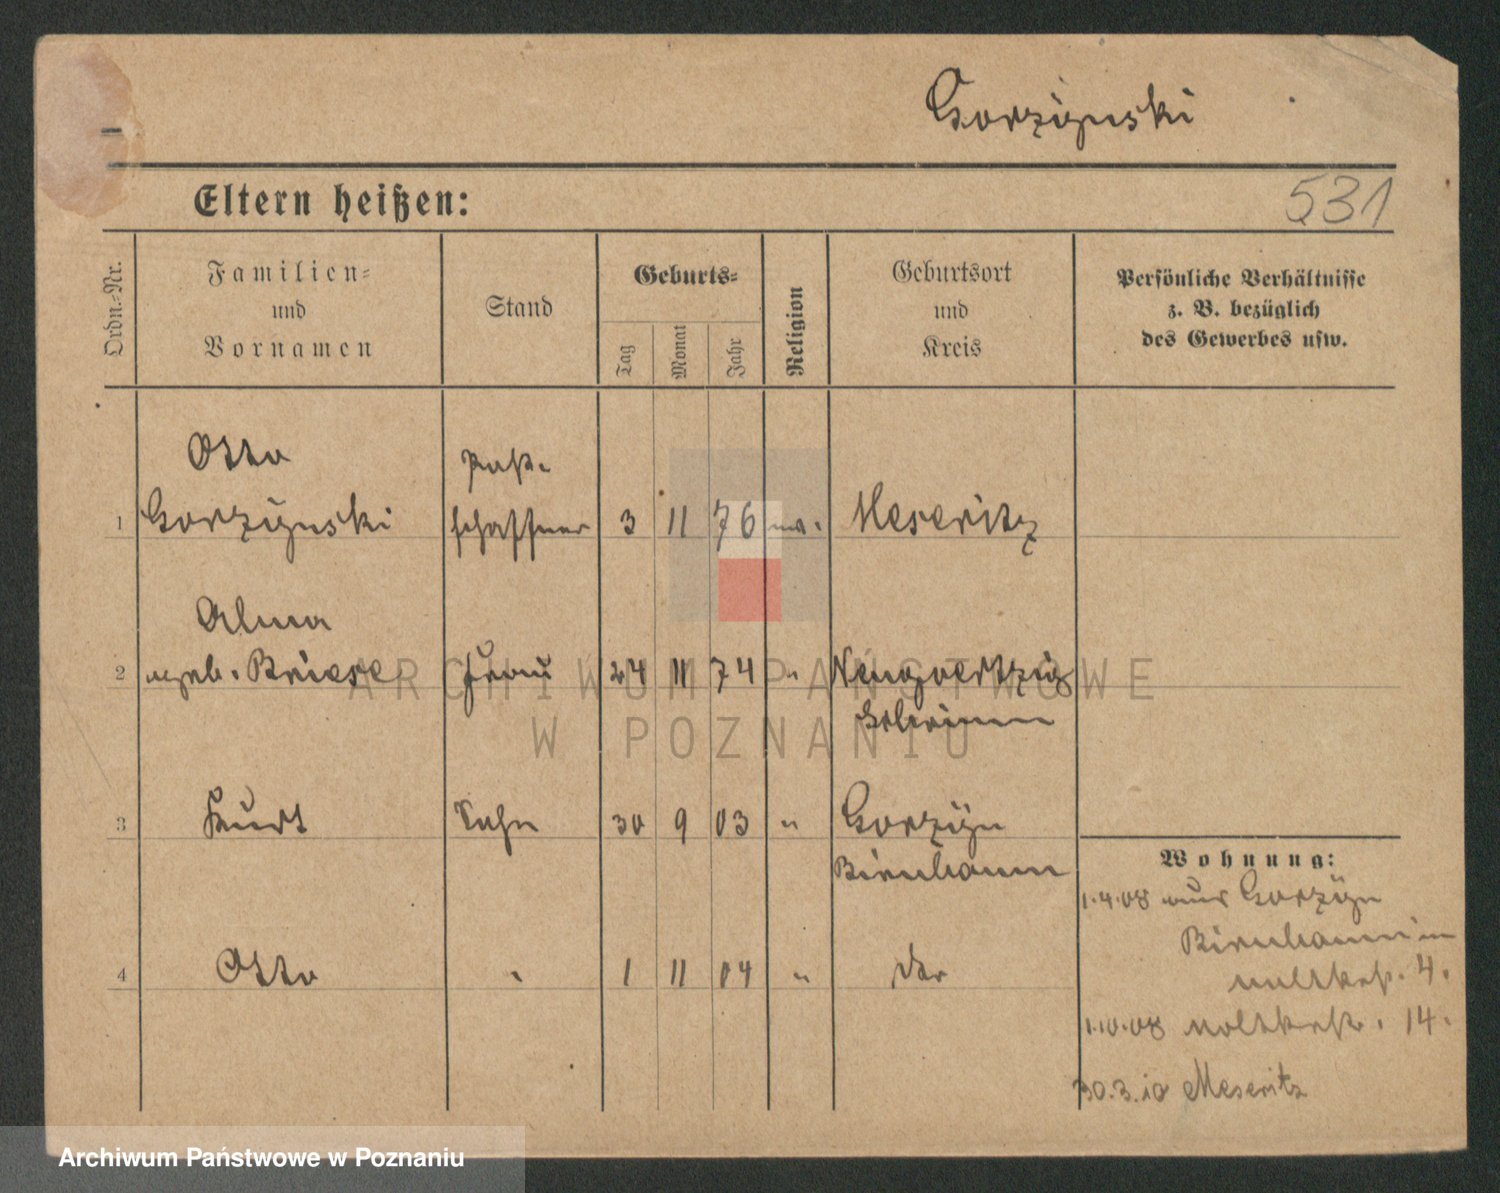 Gorzijnski
Eltern heißen:
531
Ordn.-Nr.
Familien-
und
Vornamen
Stand
Geburts-
Tag
Monat
Jahr
Religion
Geburtsort
und
Kreis
Persönliche Verhältnisse
z. B. bezüglich
des Gewerbes usw.
Otto
Post-
1 Gorzijnski schaffner 3 11 76 ev. Meseritz
Alma
2 geb. Briese Frau 24 11 74 "
3 Kurt Sohn 30 9 03 " Gorzijn
Birnbaum
4 Otto " 1 11 04 "
Wohnung:
1.4.08 aus Gorzijn
Birnbaum
4.
1.10.08 Moltkestr. 14.
30.3.10 Meseritz
ARCHIWUM PAŃSTWOWE
W POZNANIU
Archiwum Państwowe w Poznaniu